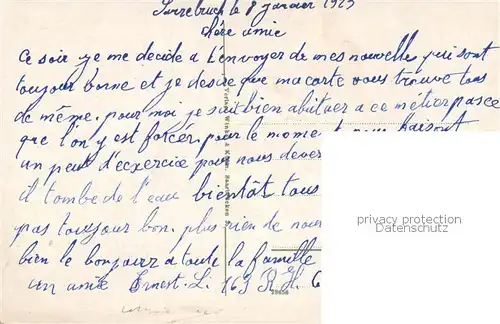 Sarrebruck le 8 janvier 1925
chère amie
Ce soir je me décide a t'envoyer de mes nouvelle qui sont
toujour bonne et je desire que ma carte vous trouve tous
de même. pour moi je suit bien abituer a ce métier pasce
que l'on y est forcér. pour le mome
un peut d'excercice pour nous
il tombe de l'eau bientôt tous
pas toujour bon. plus rien de nou
bien le bonjour a toute la famille
un amie Ernest. L. 163 R.
28656
privacy protection
WATERMARK